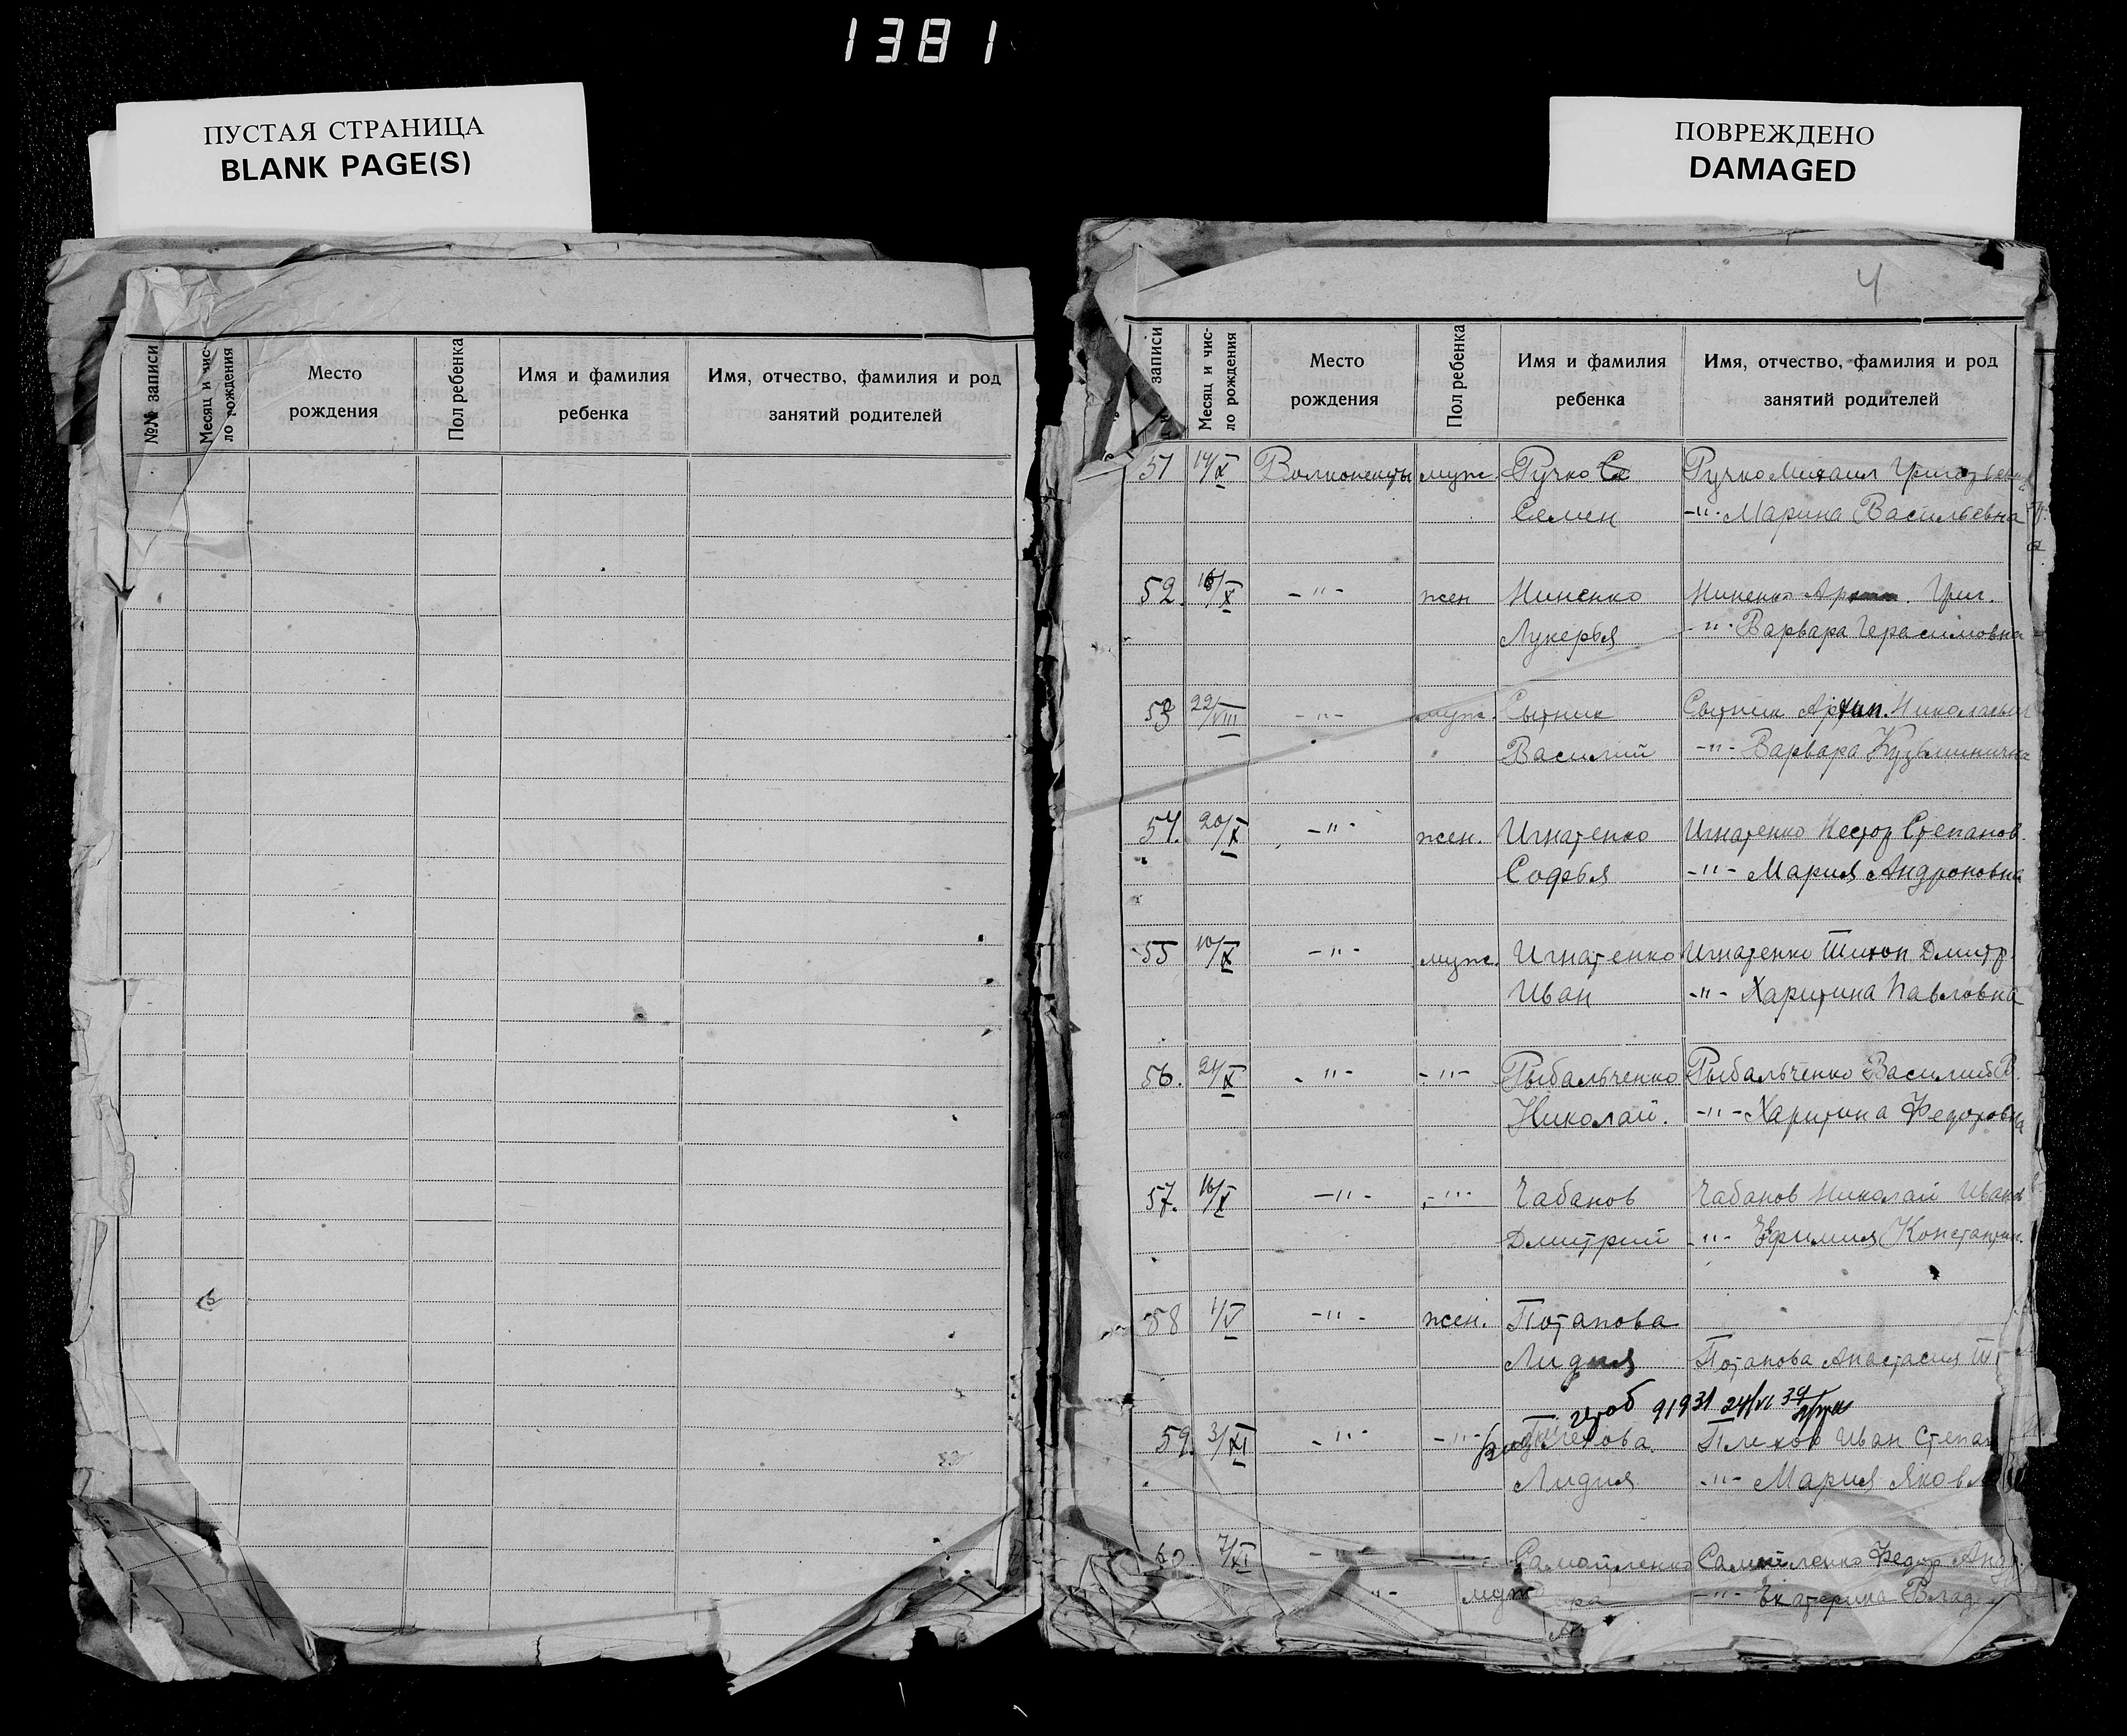 1381
ПУСТАЯ СТРАНИЦА
BLANK PAGE(S)
ПОВРЕЖДЕНО
DAMAGED
№№ записи
Месяц и чис-
ло рождения
Место
рождения
Пол ребенка
Имя и фамилия
ребенка
Имя, отчество, фамилия и род
занятий родителей
4
записи
Месяц и чис-
ло рождения
Место
рождения
Пол ребенка
Имя и фамилия
ребенка
Имя, отчество, фамилия и род
занятий родителей
51 14/X муж. Ручко Се Ручко Михаил
Семен -"- Марина Васильевна
52. /X -"- жен Ниненко Ниненко Григ.
Лукерья -"- Варвара Герасимовна
53 22/VIII -"- муж. Сытник Сытник Архип. Николаевич
Василий -"- Варвара Кузьминична
54. 20/X -"- жен. Игнатенко Игнатенко Нестор Степанов.
Софья -"- Мария Андроновна
55 10/X -"- муж. Игнатенко Игнатенко Тихон Дмитр.
Иван -"- Харитина Павловна
56. 21/X -"- -"- Рыбальченко Рыбальченко Василий В.
Николай. -"- Харитина Федоровна
57. 16/X -"- -"- Чабанов Чабанов Николай Иванов
Дмитрий -"- Ефимия Константин.
58 1/V -"- жен. Потапова
Лидия Потапова Анастасия
91931 24/VI 39
59. 3/XI -"- -"- Плехов Иван Степан
Лидия -"- Мария Яковл
60. 7/XI -"- Самойленко Самойленко Федор Анд
муж -"- Екатерина Влад